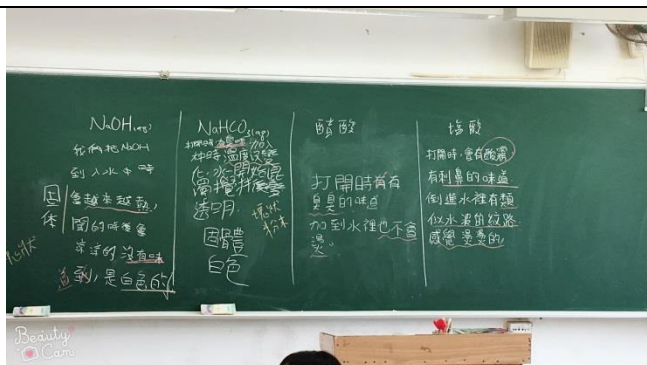 NaOH(aq)
我們把NaOH
倒入水中時
會越來越熱,
聞的時候會
涼涼的沒有味
道, 是白色的
固体
NaHCO3(aq)
加入
水時溫度沒變
化, 水一開始是
濁攪拌後變
透明
塊狀
粉末
固體
白色
醋酸
打開時有
臭臭的味道
加到水裡也不會
燙。
塩酸
打開時,會有酸霧
有刺鼻的味道
倒進水裡有類
似水波的紋路
感覺燙燙的,
Beauty
Cam